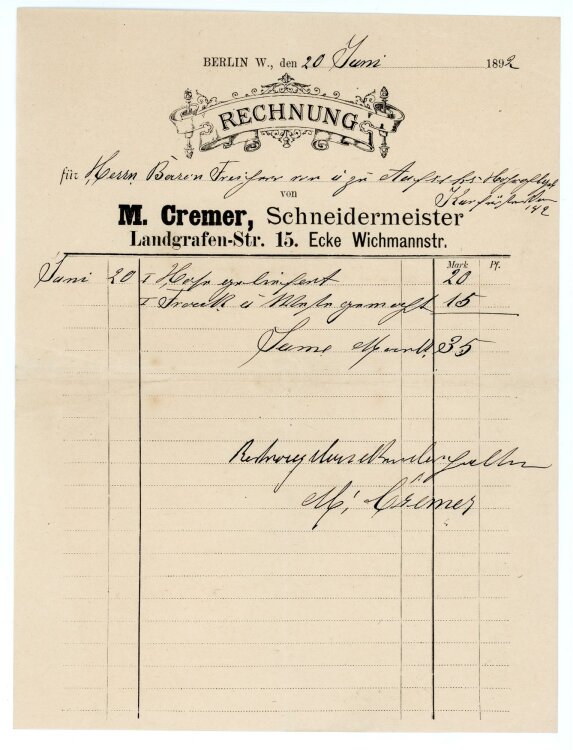 BERLIN W., den 20 Juni 1892
RECHNUNG
für Herrn Baron Freiherr von u zu
von
M. Cremer, Schneidermeister
Landgrafen-Str. 15. Ecke Wichmannstr.
Mark Pf.
Juni 20 1 Hose geliefert 20
1 Frack u Weste gemacht 15
Sume Mark 35
M. Cremer